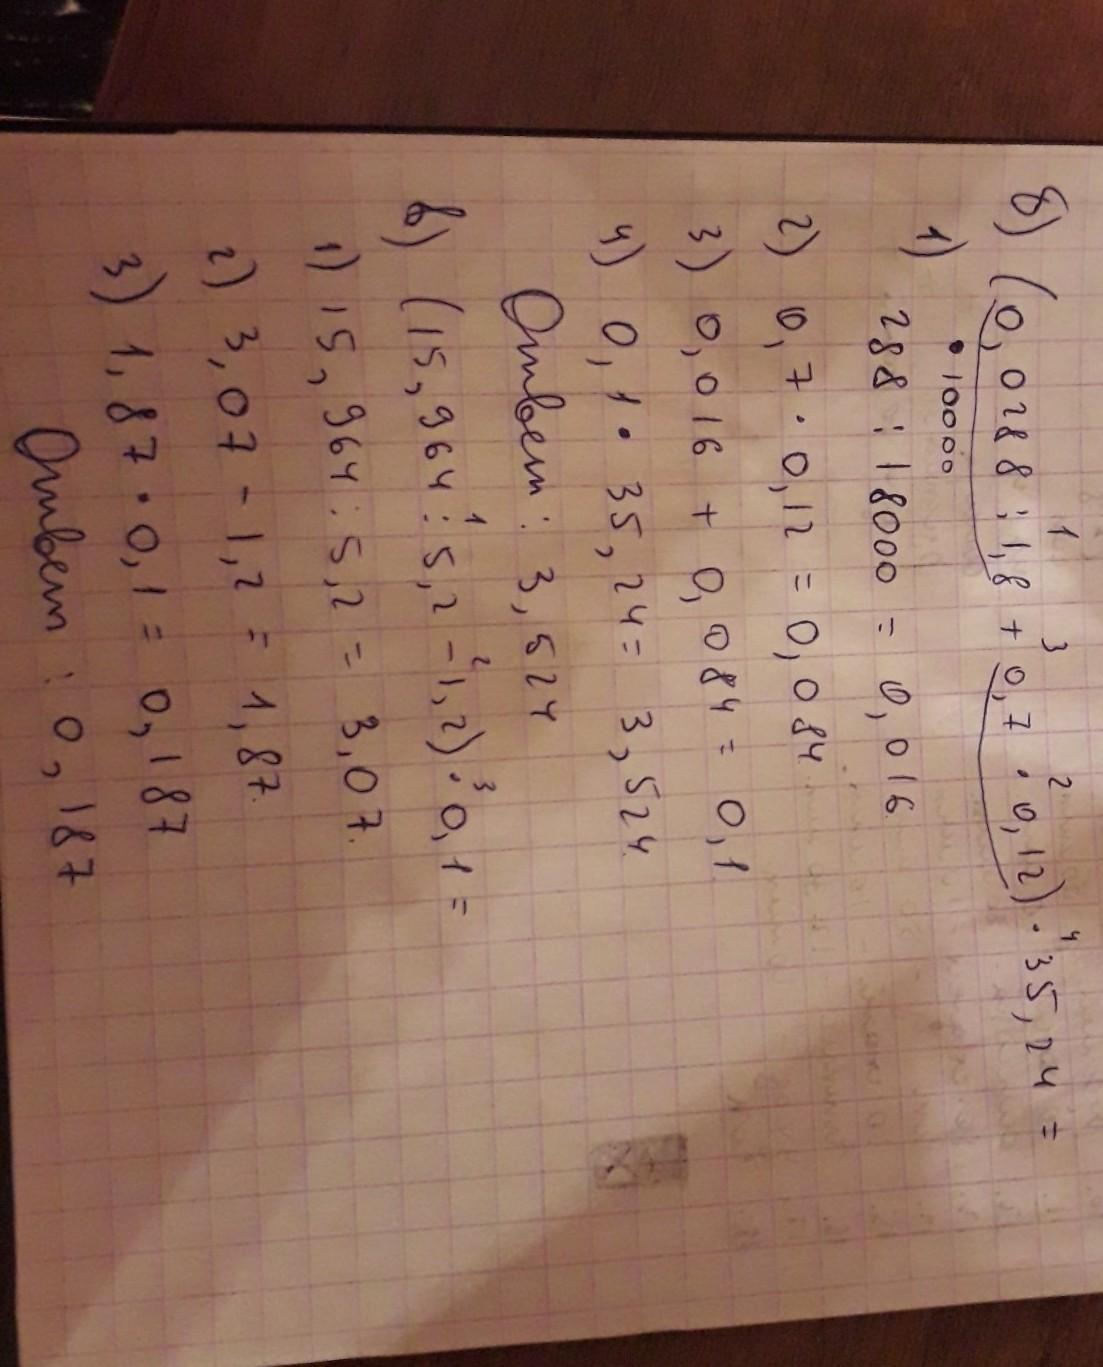 б) (0,0288 : 1,8 + 0,7 · 0,12) · 35,24 =
1 3 2 4
1) · 10000
288 : 18000 = 0,016
2) 0,7 · 0,12 = 0,084
3) 0,016 + 0,084 = 0,1
4) 0,1 · 35,24 = 3,524
Ответ : 3,524
в) (15,964 : 5,2 - 1,2) · 0,1 =
1 2 3
1) 15,964 : 5,2 = 3,07.
2) 3,07 - 1,2 = 1,87.
3) 1,87 · 0,1 = 0,187
Ответ : 0,187